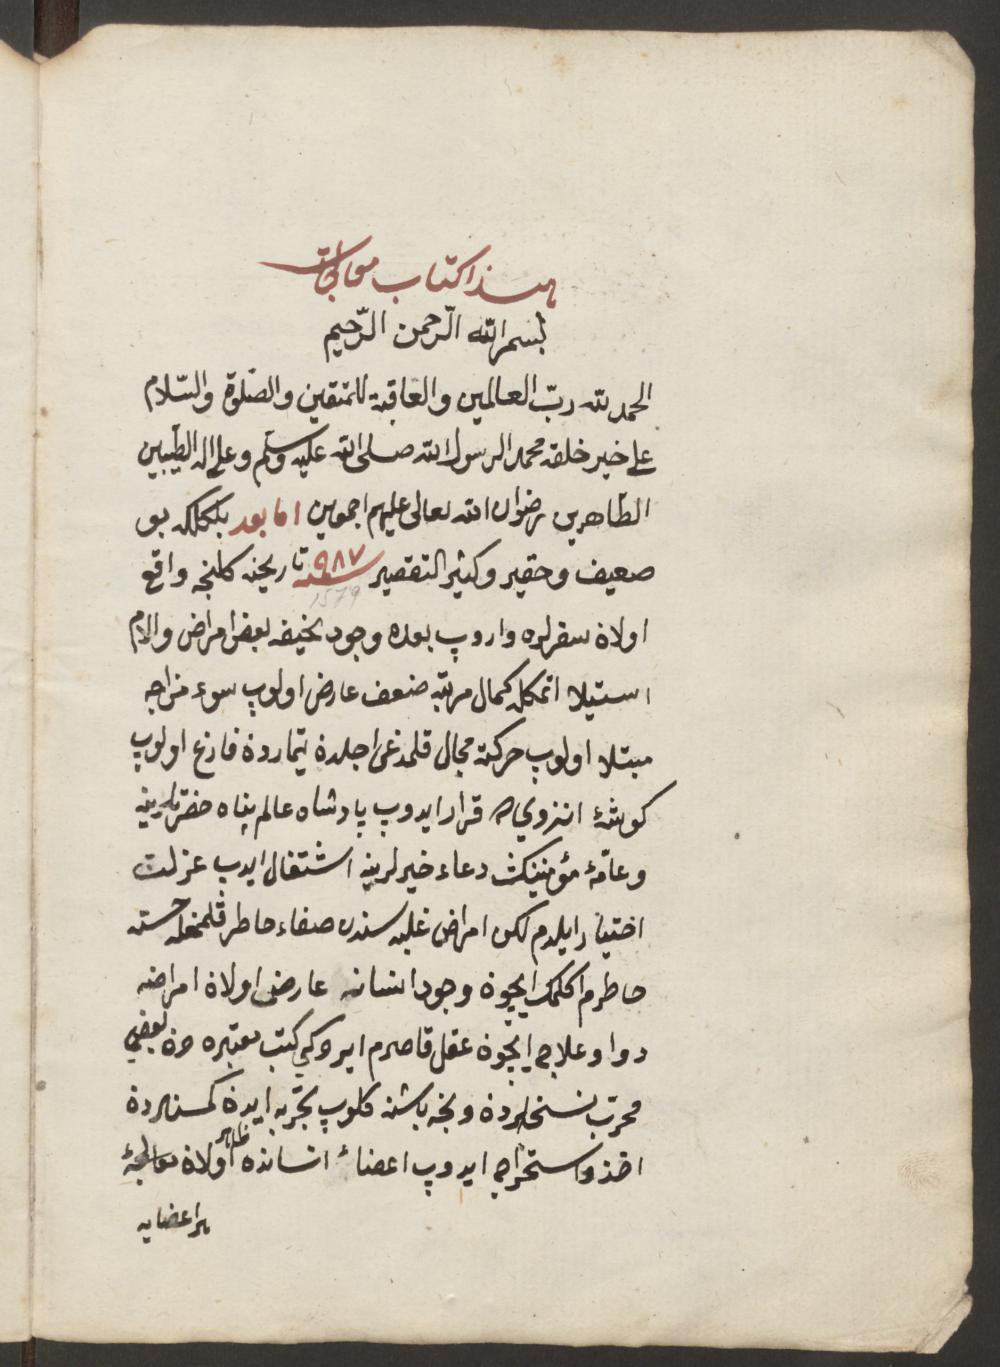 هذا كتاب معالجات
بسم الله الرّحمن الرّحيم
الحمد لله ربّ العالمين والعاقبة للمتقين والصّلوة والسّلام
على خير خلقه محمد الرسول الله صلى الله عليه وسلّم وعلى اله الطّيبين
الطّاهرين رضوان الله تعالى عليهم اجمعين اما بعد بلكلكه بو
ضعيف وحقير وكثير التقصير سنه ٩٨٧ تاريخنه كلنجه واقع
1579
اولان سفرلره واروپ بعده وجود نحيفه بعض امراض والام
استيلا اتمكله كمال مرتبه ضعف عارض اولوب سوء مزاجه
مبتلا اولوب حركته مجال قلمدغى اجلدن تيماردن فارغ اولوب
كوشۀ قرار ايدوب پادشاه عالم پناه حضرتلرينه
وعامّۀ مؤمنينك دعاء خيرلرينه اشتغال ايدب عزلت
اختيار ايلدم لكن امراض غلبه سندن صفاء خاطر قلمغله خسته
خاطرم اكلمك ايچون وجود انسانه عارض اولان امراضه
دوا وعلاج ايچون عقل قاصرم ايردكى كتب معتبره دن بعضى
مجرّب نسخلردن ونجه باشنه كلوب تجربه ايدن كمسنلردن
اخذ واستخراج ايدوب اعضاء انسانده ظاهر اولان معالجۀ
هر اعضايه